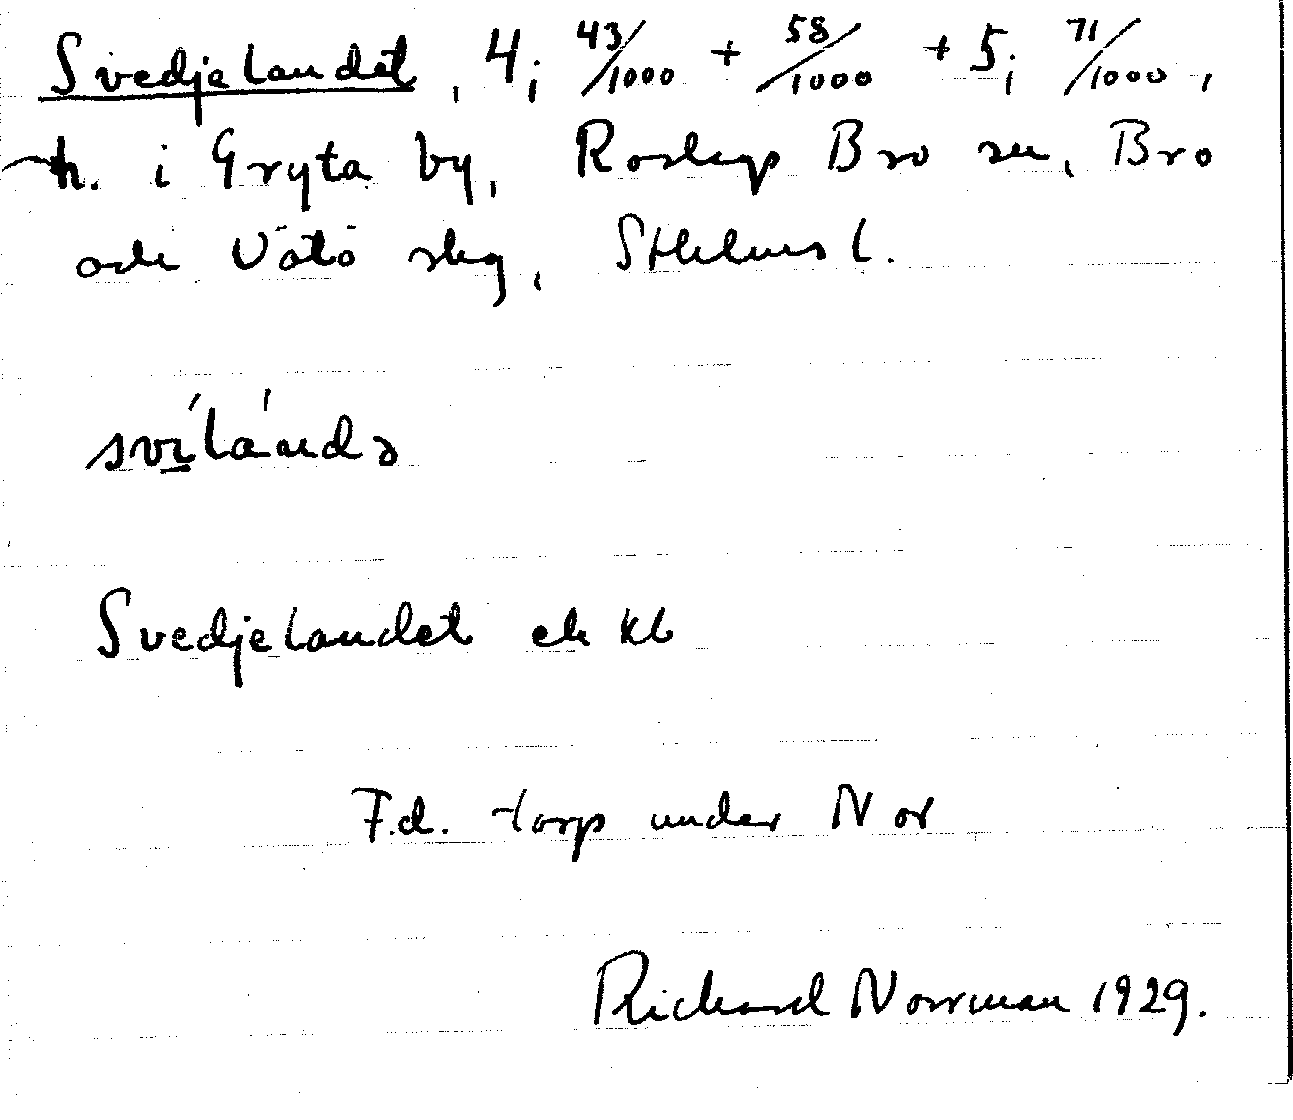 Svedjelandet, 4; 43/1000 + 58/1000 + 5; 71/1000,
h. i Gryta by, Roslags Bro sn, Bro
och Vätö skg, Sthlms l.
svi̱´la´ndə
Svedjelandet ek kb
F.d. torp under Nor
Richard Norrman 1929.